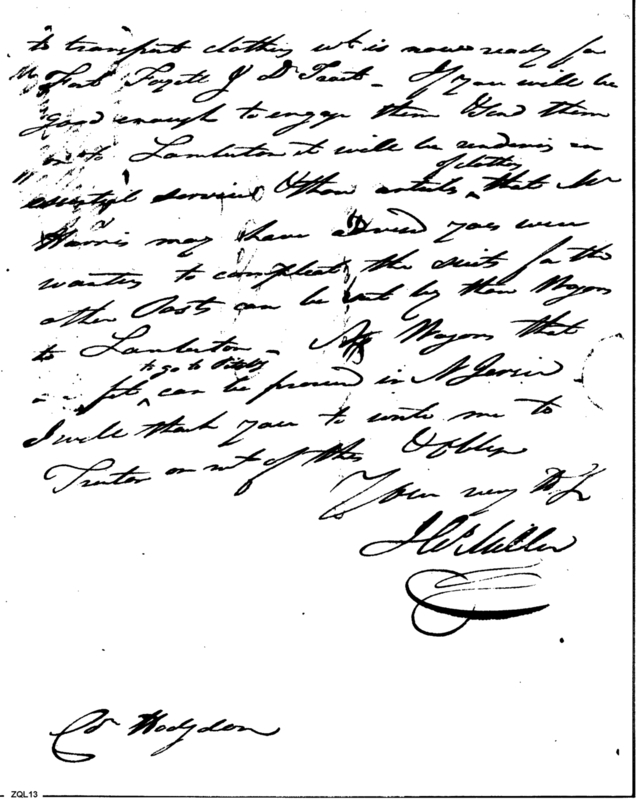 to transport clothing wh is now ready for
Fort Fayett & D Troit - If you will be
good enough to engage them & send them
on to Lamberton it will be rendering an
of clothing
essential service & those articles ^ that Mr
Harris may have advised you were
wanting to compleat the suits for the
other Posts can be sent by these Wagons
to Lamberton - No Wagons that
to go to Pittsb
fit ^ can be procured in N Jersie -
I will thank you to write me to
Trenton on rect of this & oblige
Your very H S
Col Hodgdon
ZQL13